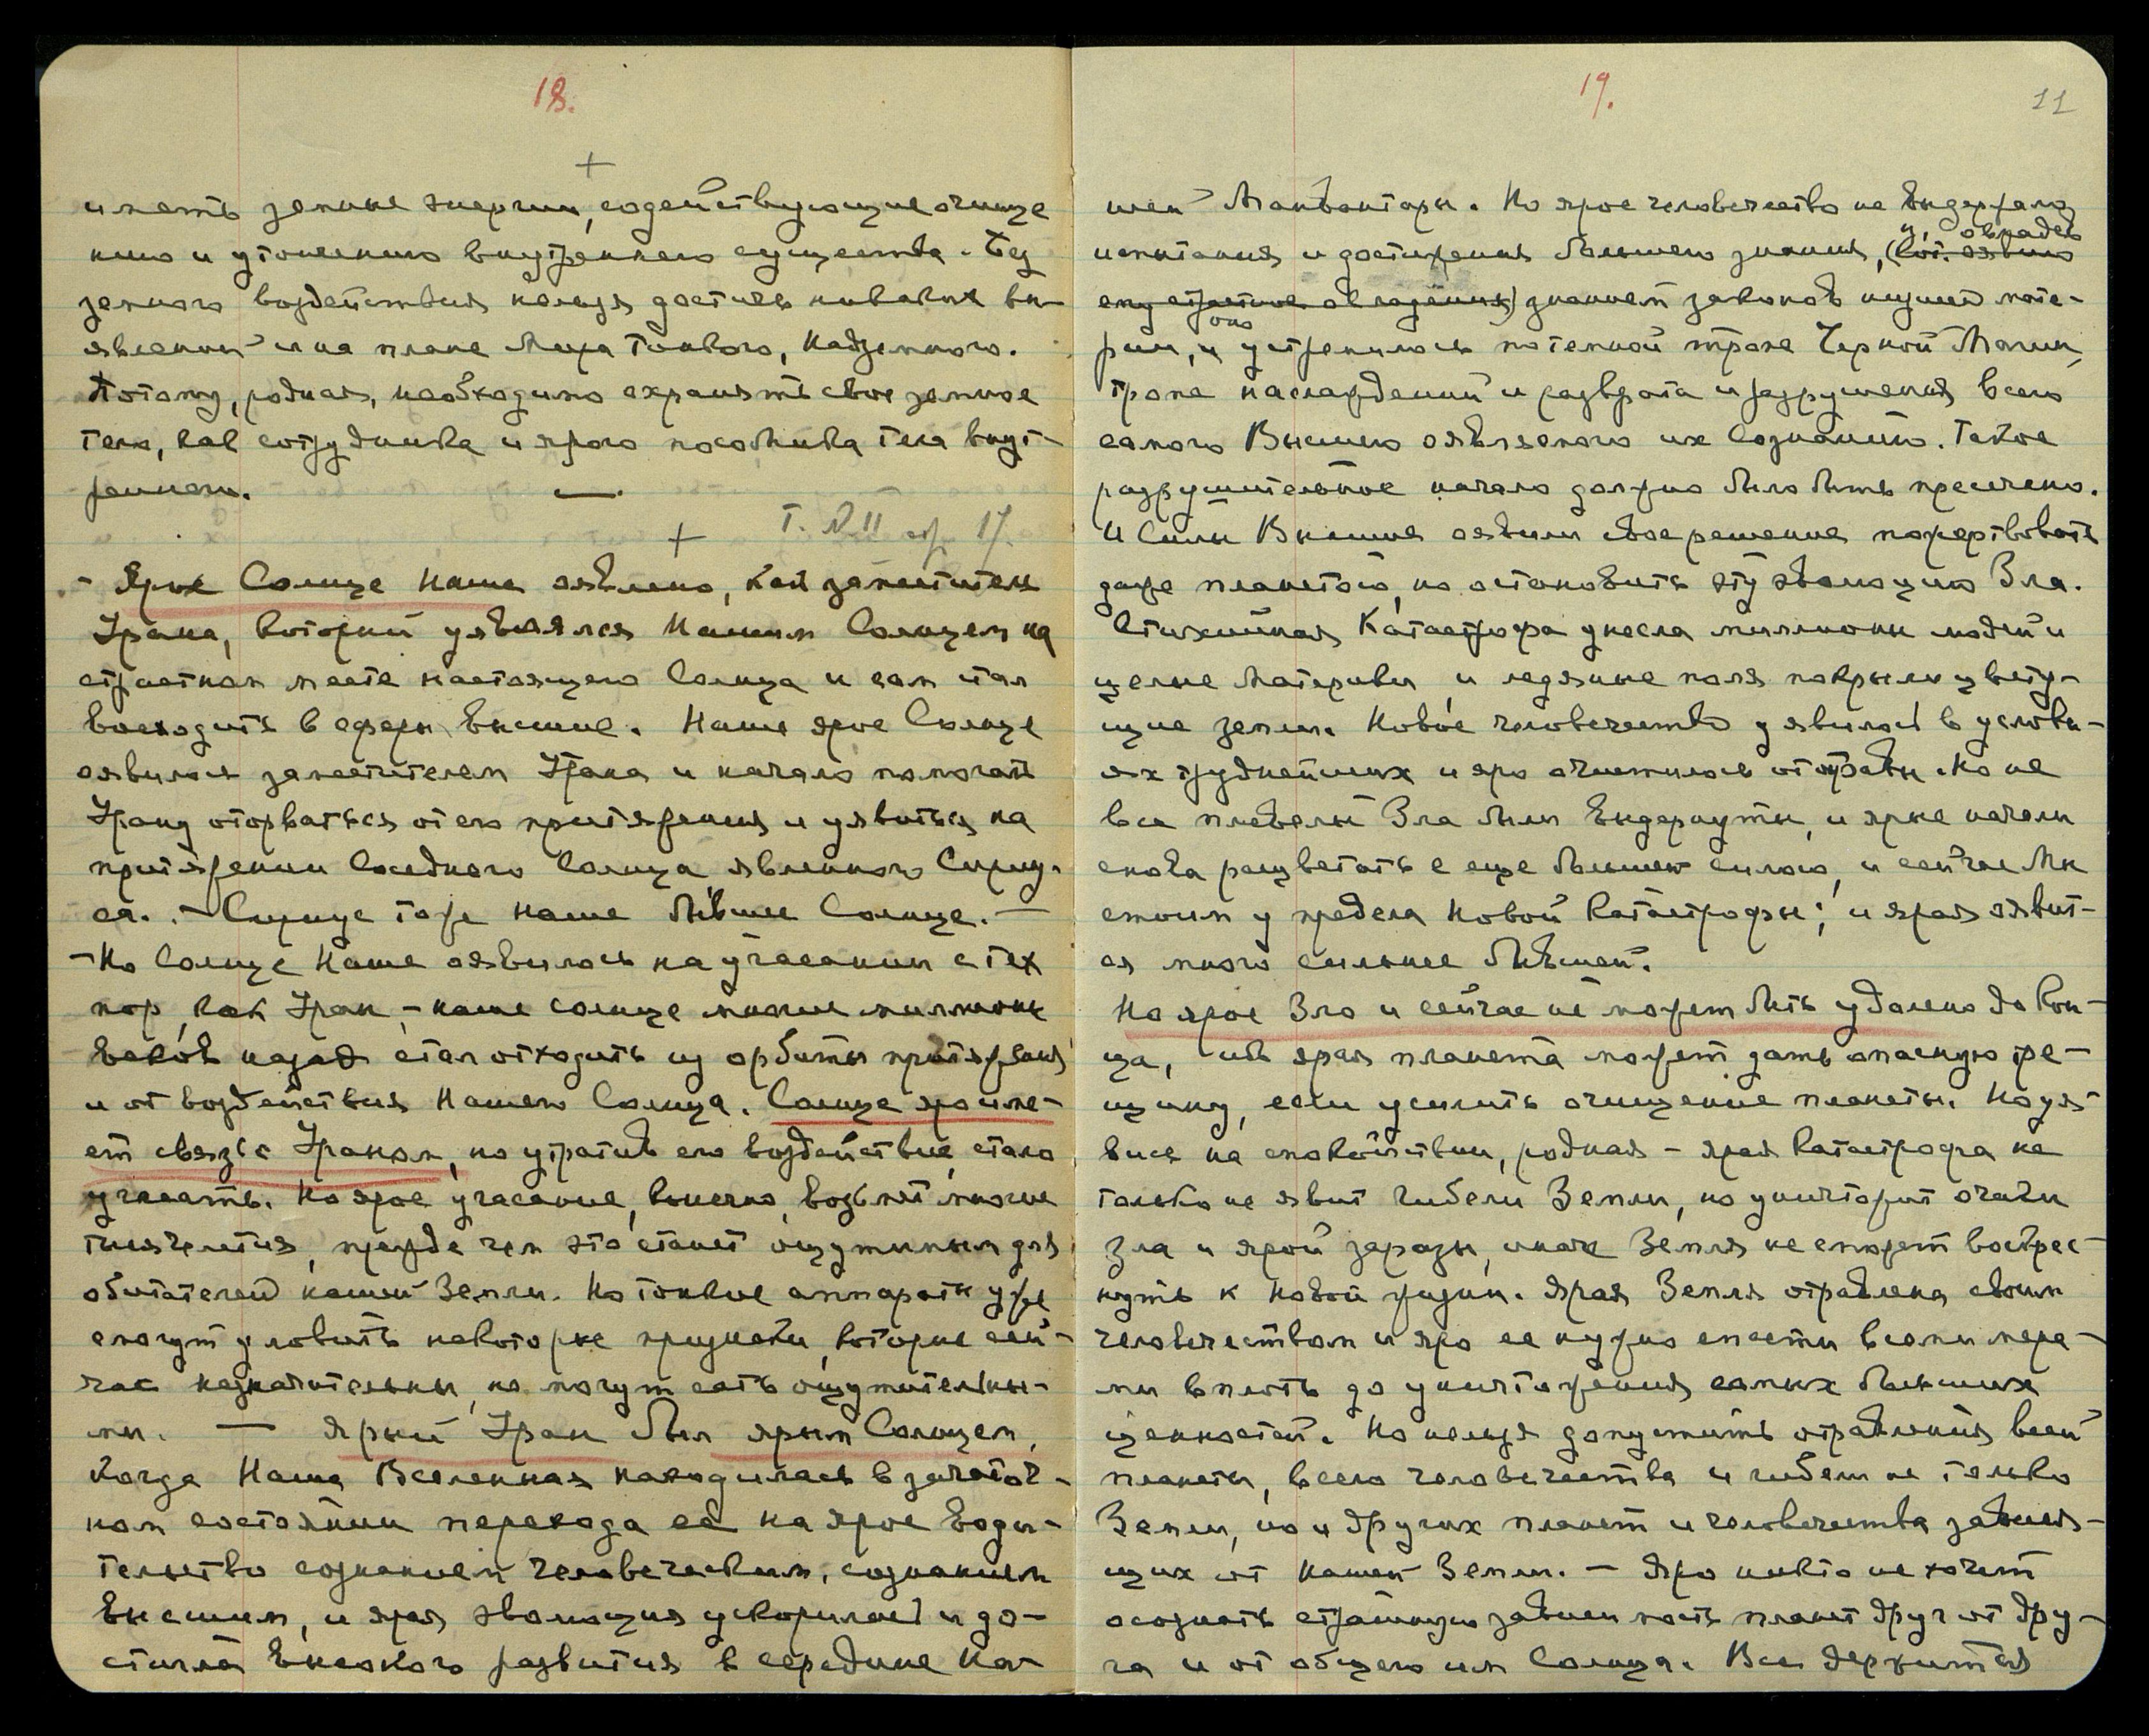 18.
+
иметь земные энергии, содействующие очище
нию и утончению внутреннего существа. Без
земного воздействия нельзя достичь никаких вы-
явлений и на плане Мира Тонкого, Надземного.
Потому, родная, необходимо охранять свое земное
тело, как сотрудника и ярого пособника тела внут-
реннего. —
+ Т. № II стр 17.
- Ярое Солнце Наше оявлено, как заместитель
Урана, который уявлялся Нашим Солнцем на
страстном месте настоящего Солнца и сам стал
восходить в сферы высшие. Наше ярое Солнце
оявилось заместителем Урана и начало помогать
Урану оторваться от его притяжения и уявиться на
притяжении соседнего Солнца, явленного Сириу-
са. - Сириус тоже Наше бывшее Солнце. —
- Но Солнце Наше оявилось на угасании с тех
пор, как Уран, - наше солнце многие миллионы
веков назад стал отходить из орбиты притяжения
и от воздействия Нашего Солнца. Солнце яро име-
ет связь с Ураном, но утратив его воздействие, стало
угасать. Но ярое угасание, конечно, возьмет многие
тысячелетия, прежде чем это станет ощутимым для
обитателей нашей Земли. Но тонкие аппараты уже
смогут уловить некоторые признаки, которые сей-
час незначительны, но могут стать ощутительны-
ми. — Ярый Уран был ярым Солнцем,
когда Наша Вселенная находилась в зачаточ-
ном состоянии перехода её на ярое води-
тельство сознанием человеческим, сознанием
высшим, и ярая эволюция ускорилась и до-
стигла высокого развития в середине На-
19.
11
шей Манвантары. Но ярое человечество не выдержало
испытания и достижения большего знания, (вот оявило
и, овладев
ему страстное овладения) знанием законов низшей мате-
рии, и оно устремилось по темной тропе Черной Магии,
тропе наслаждений и разврата и разрушения всего
самого Высшего оявляемого их сознанию. Такое
разрушительное начало должно было быть пресечено.
И Силы Высшие оявили свое решение пожертвовать
даже планетою, но остановить эту эволюцию Зла.
Стихийная Катастрофа унесла миллионы людей и
целые Материки, и ледяные поля покрыли цвету-
щие земли. Новое человечество уявилось в услови-
ях труднейших и яро очистилось от отравы. Но не
все плевелы Зла были выдернуты, и ярые начали
снова расцветать с еще большею силою, и сейчас Мы
стоим у предела Новой Катастрофы; и ярая оявит-
ся много сильнее бывшей.
Но ярое Зло и сейчас не может быть удалено до кон-
ца, ибо ярая планета может дать опасную тре-
щину, если усилить очищение планеты. Но уя-
вися на спокойствии, родная - ярая Катастрофа не
только не явит гибели Земли, но уничтожит очаги
Зла и ярой заразы, иначе Земля не сможет воскрес-
нуть к Новой жизни. Ярая Земля отравлена своим
человечеством и яро ее нужно спасти всеми мера-
ми вплоть до уничтожения самых больших
ценностей. Но нельзя допустить отравления всей
планеты, всего человечества и гибели не только
Земли, но и других планет и человечества завися-
щих от нашей Земли. - Яро никто не хочет
осознать страшную зависимость планет друг от дру-
га и от общего им Солнца. Все держится